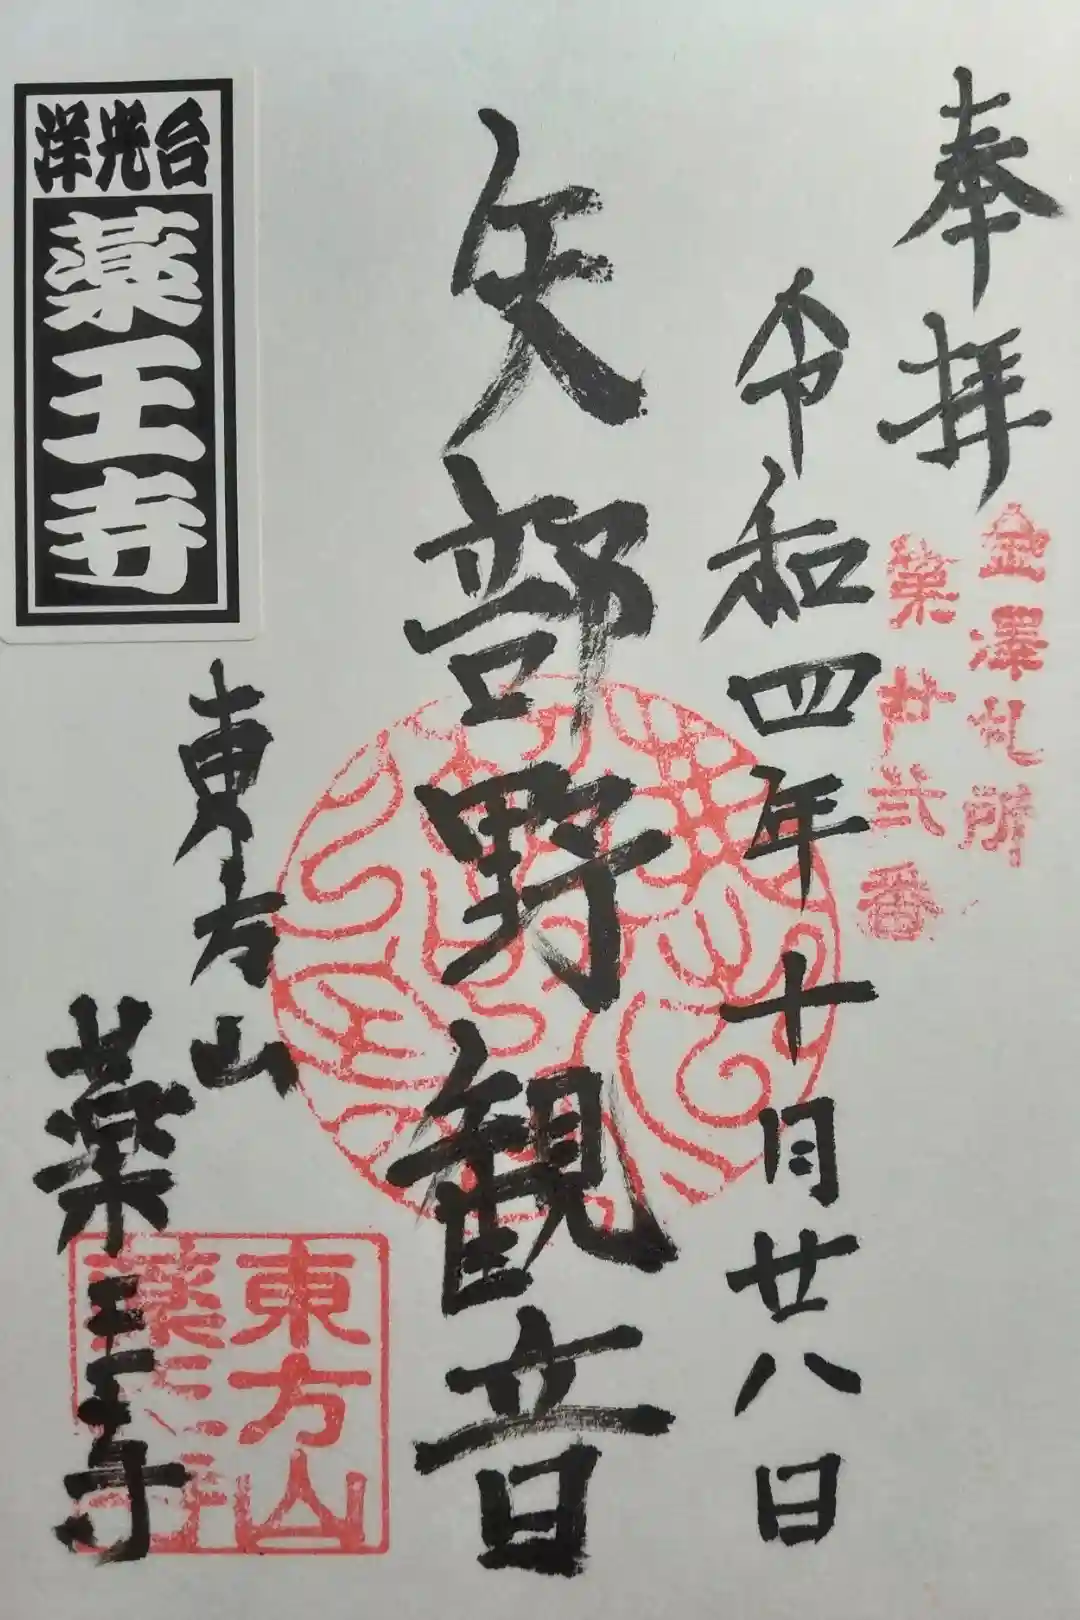 奉拝
金澤札所
第廿弐番
令和四年十月廿八日
矢部野観音
東方山
薬王寺
東方山
薬王寺
洋光台
薬王寺